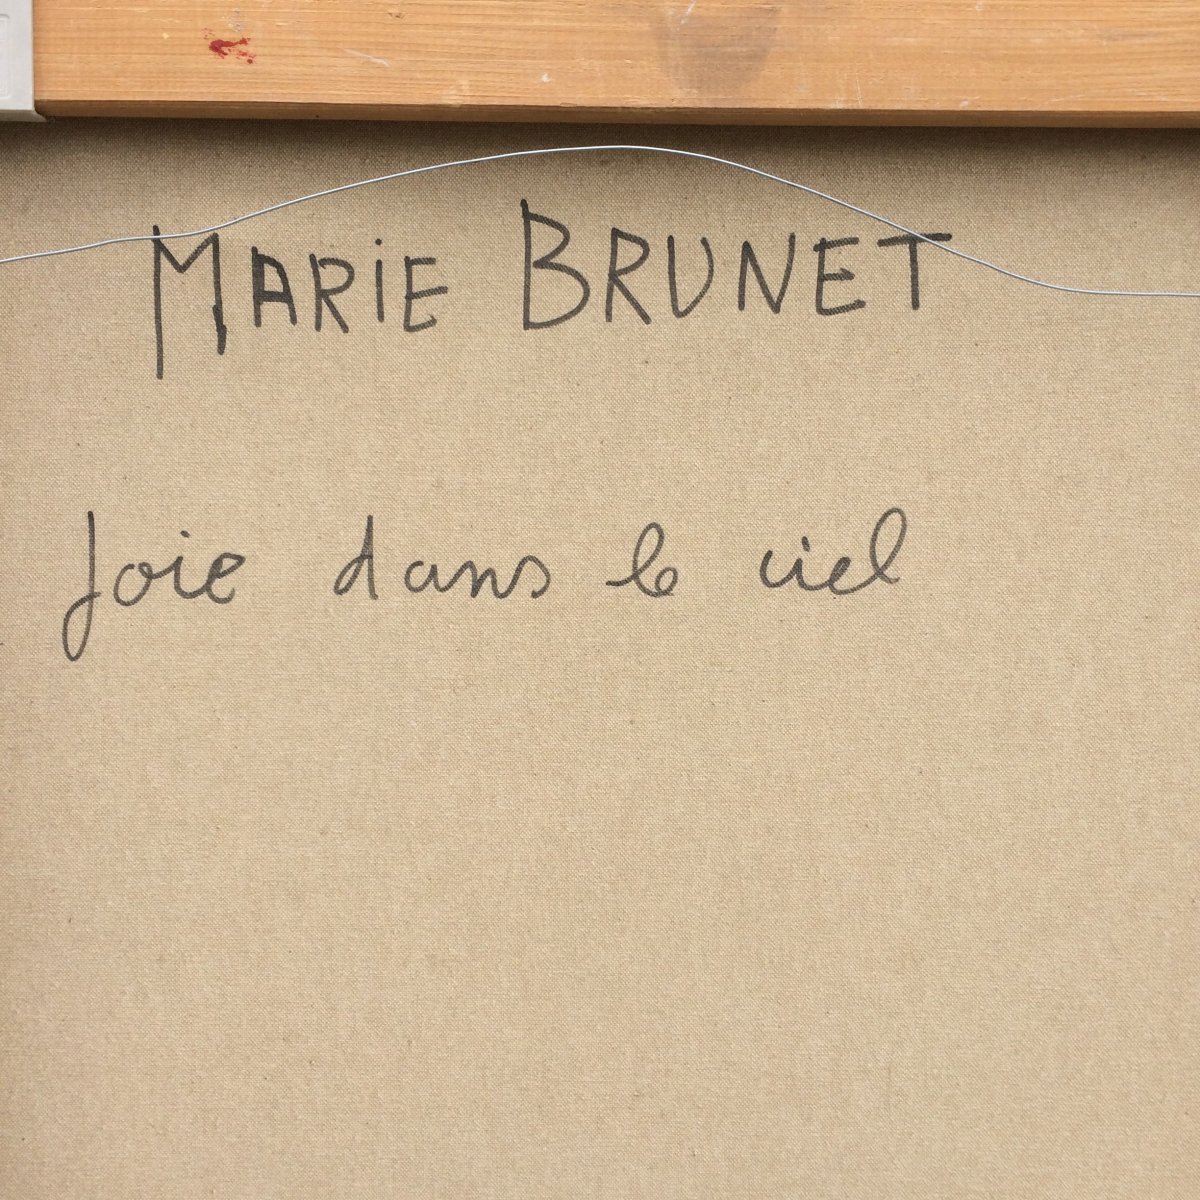 MARiE BRUNET
Joie dans le ciel